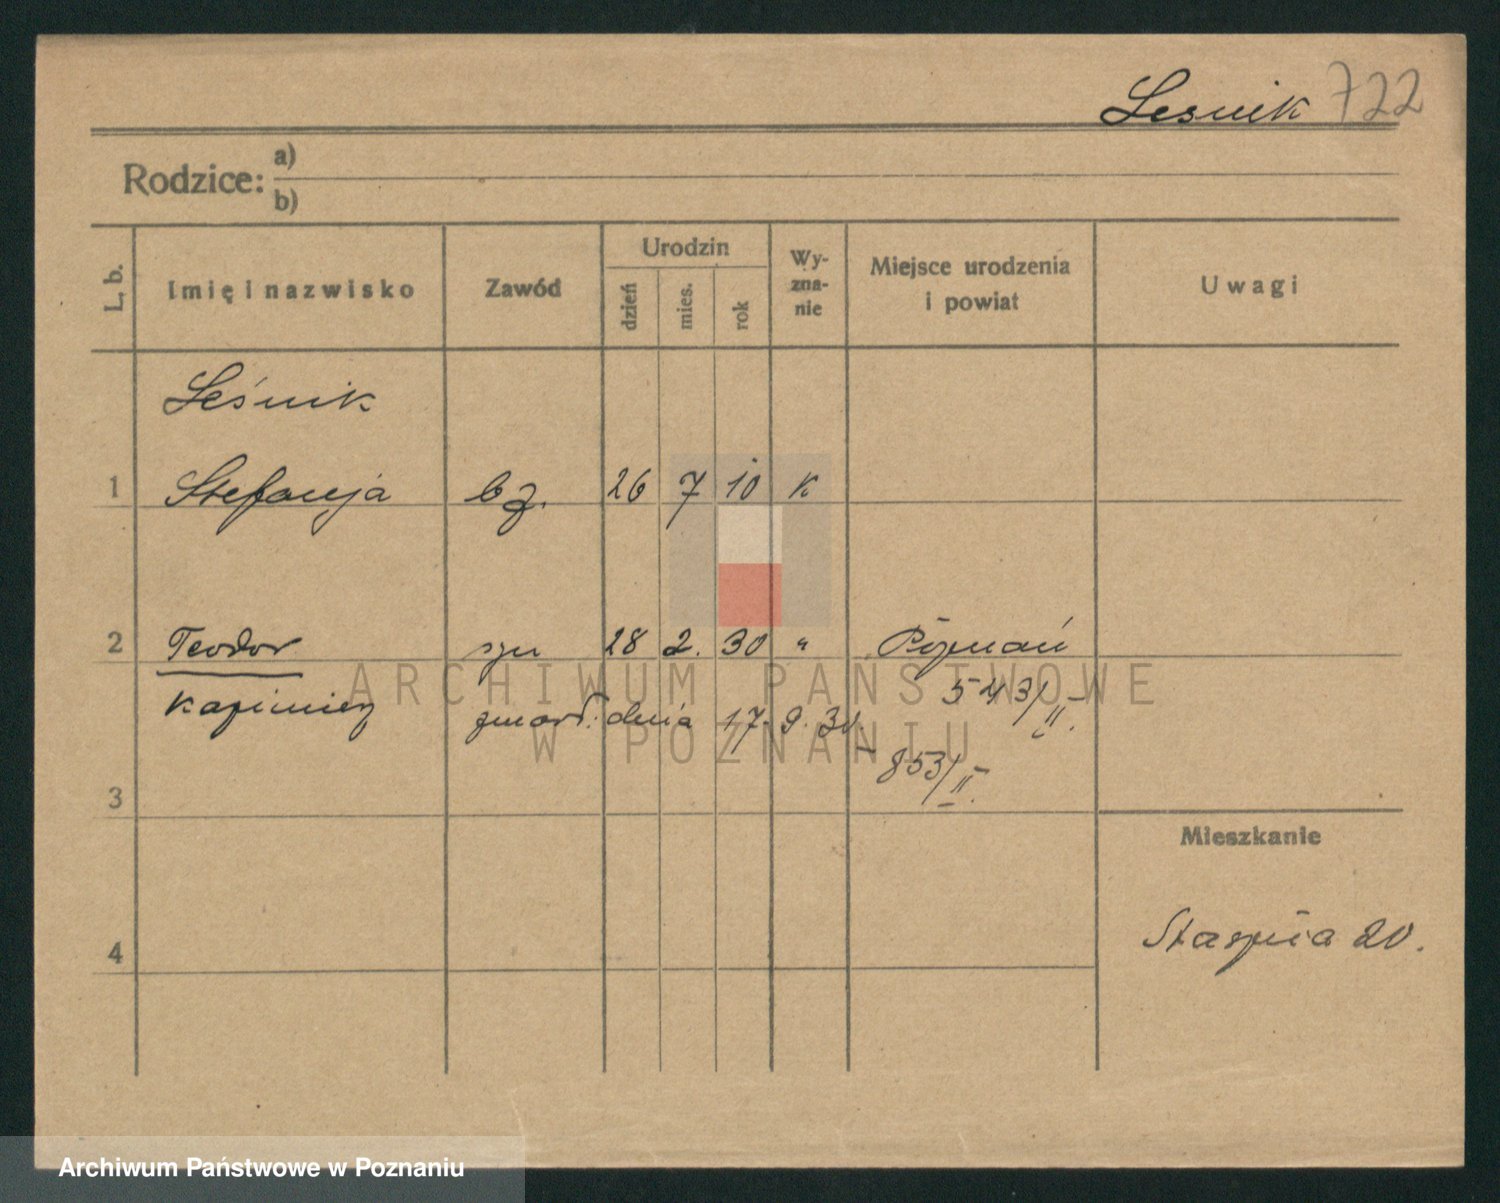 Lesnik 722
Rodzice: a)
b)
L. b.
Imię i nazwisko
Zawód
Urodzin
dzień
mies.
rok
Wy-
zna-
nie
Miejsce urodzenia
i powiat
Uwagi
Leśnik
1 Stefanja bz. 26 7 10 K
2 Teodor syn 28 2. 30 " Poznań
Kazimierz 543/II.
zmarł: dnia 17. 9. 30.
853/II.
3
Mieszkanie
Staszica 20.
4
ARCHIWUM PAŃSTWOWE
W POZNANIU
Archiwum Państwowe w Poznaniu